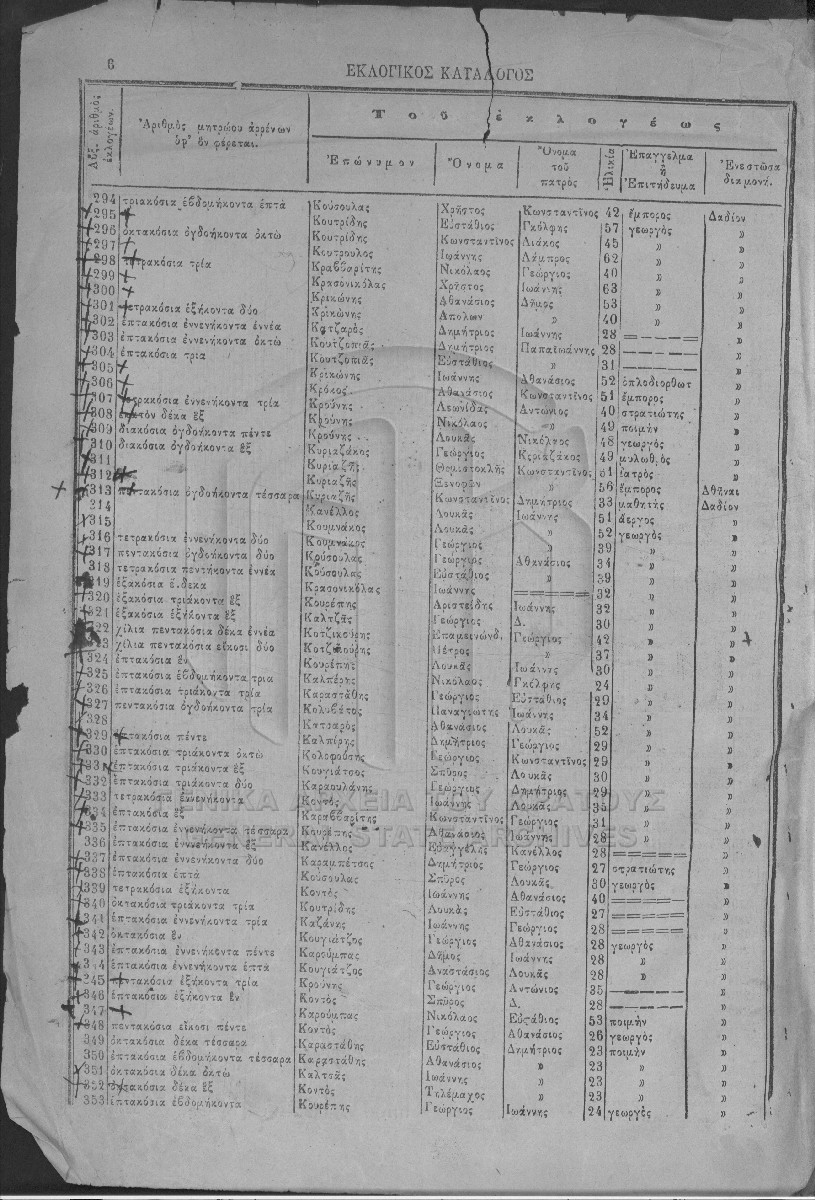 6
ΕΚΛΟΓΙΚΟΣ ΚΑΤΑΛΟΓΟΣ
Αὔξ. ἀριθμὸς ἐκλογέων.
Ἀριθμὸς μητρώου ἀρρένων ὑφ' ὃν φέρεται.
Τοῦ ἐκλογέως
Ἐπώνυμον Ὄνομα Ὄνομα τοῦ πατρός Ἡλικία Ἐπάγγελμα ἢ Ἐπιτήδευμα Ἐνεστῶσα διαμονή.
294 τριακόσια ἑβδομήκοντα ἑπτὰ Κούσουλας Χρῆστος Κωνσταντῖνος 42 ἔμπορος Δαδίον
295 Κουτρίδης Εὐστάθιος Γκόλφης 57 γεωργὸς »
296 ὀκτακόσια ὀγδοήκοντα ὀκτὼ Κουτρίδης Κωνσταντῖνος Λιάκος 45 » »
297 Κουτρουλος Ἰωάννης Λάμπρος 62 » »
298 τετρακόσια τρία Κραββαρίτης Νικόλαος Γεώργιος 40 » »
299 Κρασονικόλας Χρῆστος Ἰωάννης 63 » »
300 Κρικώνης Ἀθανάσιος Δῆμος 53 » »
301 τετρακόσια ἑξήκοντα δύο Κρικώνης Ἀπολων » 40 » »
302 ἑπτακόσια ἐννενήκοντα ἐννέα Κατζαρὸς Δημήτριος Ἰωάννης 28 »
303 ἑπτακόσια ἐννενήκοντα ὀκτὼ Κουτζοπιᾶς Δημήτριος Παπαϊωάννης 28 »
304 ἑπτακόσια τρία Κουτζοπιᾶς Εὐστάθιος » 31 »
305 Κρικώνης Ἰωάννης Ἀθανάσιος 52 ὁπλοδιορθωτ »
306 Κρόκος Ἀθανάσιος Κωνσταντῖνος 51 ἔμπορος »
307 τετρακόσια ἐννενήκοντα τρία Κρούνης Λεωνίδας Ἀντώνιος 40 στρατιώτης »
308 ἑκατὸν δέκα ἓξ Κρούνης Νικόλαος » 49 ποιμὴν »
309 διακόσια ὀγδοήκοντα πέντε Κρούνης Λουκᾶς Νικόλαος 48 γεωργὸς »
310 διακόσια ὀγδοήκοντα ἓξ Κυριαζάκος Γεώργιος Κυριαζάκος 49 μυλωθρὸς »
311 Κυριαζῆς Θεμιστοκλῆς Κωνσταντῖνος 61 ἰατρὸς »
312 Κυριαζῆς Ξενοφῶν » 56 ἔμπορος Ἀθῆναι
313 πεντακόσια ὀγδοήκοντα τέσσαρα Κυριαζῆς Κωνσταντῖνος Δημήτριος 33 μαθητὴς Δαδίον
214 Κανέλλος Λουκᾶς Ἰωάννης 51 ἄεργος »
315 Κουμνάκος Λουκᾶς » 52 γεωργὸς »
316 τετρακόσια ἐννενήκοντα δύο Κουμνάκος Γεώργιος » 39 » »
317 πεντακόσια ὀγδοήκοντα δύο Κούσουλας Γεώργιος Ἀθανάσιος 34 » »
318 τετρακόσια πεντήκοντα ἐννέα Κούσουλας Εὐστάθιος » 39 » »
319 ἑξακόσια ἕ.δεκα Κρασονικόλας Ἰωάννης 32 » »
320 ἑξακόσια τριάκοντα ἓξ Κουρέπης Ἀριστείδης Ἰωάννης 32 » »
321 ἑξακόσια ἑξήκοντα ἓξ Καλτζᾶς Γεώργιος Δ. 30 » »
322 χίλια πεντακόσια δέκα ἐννέα Κοτζικούρης Ἐπαμεινώνδ. Γεώργιος 42 » »
323 χίλια πεντακόσια εἴκοσι δύο Κοτζικούρης Πέτρος » 37 » »
324 ἑπτακόσια ἓν Κουρέπης Λουκᾶς Ἰωάννης 30 » »
325 ἑπτακόσια ἑβδομήκοντα τρια Καλπέρης Νικόλαος Γκόλφης 24 » »
326 ἑπτακόσια τριάκοντα τρία Καραστάθης Γεώργιος Εὐστάθιος 29 » »
327 πεντακόσια ὀγδοήκοντα τρία Κολυβάτος Παναγιώτης Ἰωάννης 34 » »
328 Κατσαρὸς Ἀθανάσιος Λουκᾶς 52 » »
329 ἑπτακόσια πέντε Καλπίρης Δημήτριος Γεώργιος 29 » »
330 ἑπτακόσια τριάκοντα ὀκτὼ Κολοφούσης Γεώργιος Κωνσταντῖνος 29 » »
331 ἑπτακόσια τριάκοντα ἓξ Κουγιάτσος Σπῦρος Λουκᾶς 30 » »
332 ἑπτακόσια τριάκοντα δύο Καραουλάνης Γεώργιος Δημήτριος 29 » »
333 τετρακόσια ἐννενήκοντα Κοντὸς Ἰωάννης Λουκᾶς 35 » »
334 ἑπτακόσια ἓξ Καραββαρίτης Κωνσταντῖνος Γεώργιος 31 » »
335 ἑπτακόσια ἐννενήκοντα τέσσαρα Κουρέπης Ἀθανάσιος Ἰωάννης 28 » »
336 ἑπτακόσια ἐννενήκοντα ἓξ Κανέλλος Εὐαγγέλης Κανέλλος 28 »
337 ἑπτακόσια ἐννενήκοντα δύο Καραμπέτσος Δημήτριος Γεώργιος 27 στρατιώτης »
338 ἑπτακόσια ἑπτὰ Κούσουλας Σπῦρος Λουκᾶς 30 γεωργὸς »
339 τετρακόσια ἑξήκοντα Κοντὸς Ἰωάννης Ἀθανάσιος 40 »
340 ὀκτακόσια τριάκοντα τρία Κουτρίδης Λουκᾶς Εὐστάθιος 27 »
341 ἑπτακόσια ἐννενήκοντα τρία Καζάνης Ἰωάννης Γεώργιος 28 »
342 ὀκτακόσια ἓν Κουγιάτζης Γεώργιος Ἀθανάσιος 28 γεωργὸς »
343 ἑπτακόσια ἐννενήκοντα πέντε Καρούμπας Δῆμος Ἰωάννης 28 » »
344 ἑπτακόσια ἐννενήκοντα ἑπτὰ Κουγιάτζος Ἀναστάσιος Λουκᾶς 28 » »
345 πεντακόσια ἑξήκοντα τρία Κρούνης Γεώργιος Ἀντώνιος 35 »
346 ἑπτακόσια ἑξήκοντα ἓν Κοντὸς Σπῦρος Δ. 28 »
347 Καρούμπας Νικόλαος Εὐστάθιος 53 ποιμὴν »
348 πεντακόσια εἴκοσι πέντε Κοντὸς Γεώργιος Ἀθανάσιος 26 γεωργὸς »
349 ὀκτακόσια δέκα τέσσαρα Καραστάθης Εὐστάθιος Δημήτριος 23 ποιμὴν »
350 ἑπτακόσια ἑβδομήκοντα τέσσαρα Καραστάθης Ἀθανάσιος » 23 » »
351 ὀκτακόσια δέκα ὀκτὼ Καλτσᾶς Ἰωάννης » 23 » »
352 ὀκτακόσια δέκα ἓξ Κοντὸς Τηλέμαχος » 23 » »
353 ἑπτακόσια ἑβδομήκοντα Κουρέπης Γεώργιος Ἰωάννης 24 γεωργὸς »
ΓΕΝΙΚΑ ΑΡΧΕΙΑ ΤΟΥ ΚΡΑΤΟΥΣ
GENERAL STATE ARCHIVES